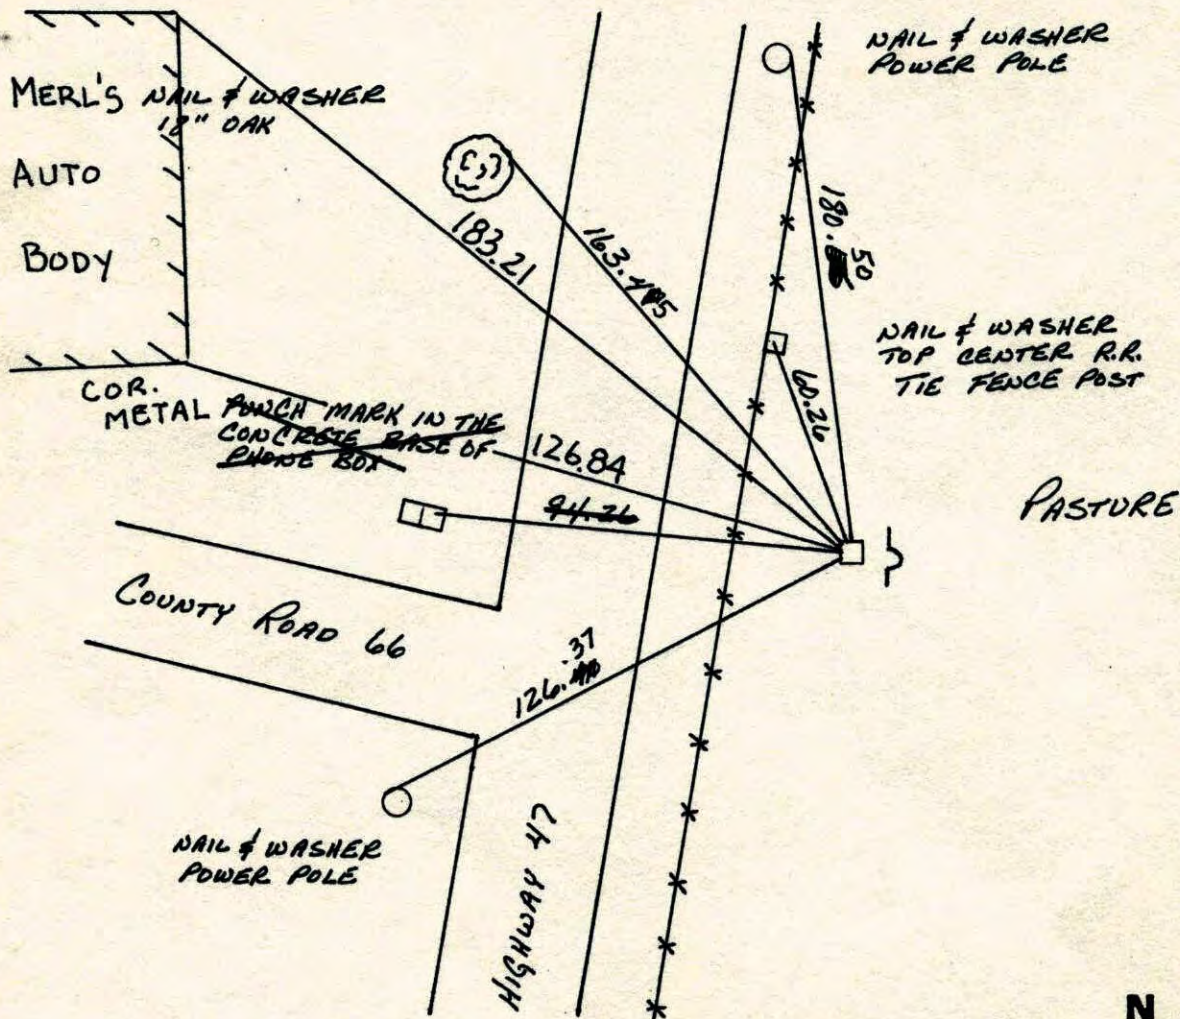 MERL'S
AUTO
BODY
NAIL & WASHER
12" OAK
NAIL & WASHER
POWER POLE
183.21
180.50
NAIL & WASHER
TOP CENTER R.R.
TIE FENCE POST
60.26
COR.
METAL
PUNCH MARK IN THE
CONCRETE BASE OF
PHONE BOX
126.84
94.26
PASTURE
COUNTY ROAD 66
126.37
NAIL & WASHER
POWER POLE
HIGHWAY 47
N